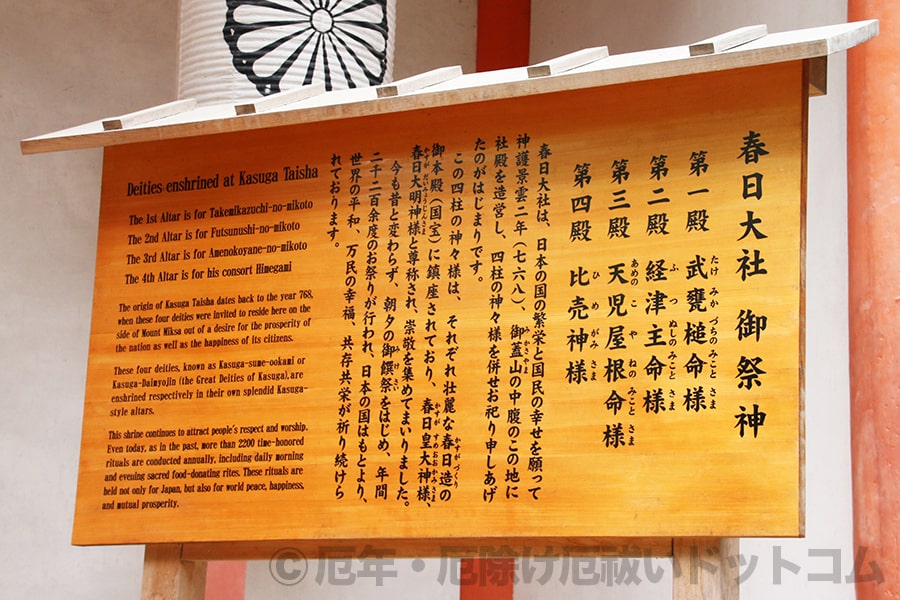 春日大社 御祭神
第一殿 武甕槌命様
たけ みかづちのみこと さま
第二殿 経津主命様
ふつぬしのみこと さま
第三殿 天児屋根命様
あめのこやねのみこと さま
第四殿 比売神様
ひめがみ さま
春日大社は、日本の国の繁栄と国民の幸せを願って
神護景雲二年(七六八)、御蓋山の中腹のこの地に
みかさやま
社殿を造営し、四柱の神々様を併せお祀り申しあげ
たのがはじまりです。
この四柱の神々様は、それぞれ壮麗な春日造の
かすがづくり
御本殿(国宝)に鎮座されており、春日皇大神様、
かすがすめおおかみさま
春日大明神様と尊称され、崇敬を集めてまいりました。
かすがだいみょうじんさま
今も昔と変わらず、朝夕の御饌祭をはじめ、年間
みけさい
二千二百余度のお祭りが行われ、日本の国はもとより、
世界の平和、万民の幸福、共存共栄が祈り続けら
れております。
Deities enshrined at Kasuga Taisha
The 1st Altar is for Takemikazuchi-no-mikoto
The 2nd Altar is for Futsunushi-no-mikoto
The 3rd Altar is for Amenokoyane-no-mikoto
The 4th Altar is for his consort Himegami
The origin of Kasuga Taisha dates back to the year 768,
when these four deities were invited to reside here on the
side of Mount Miksa out of a desire for the prosperity of
the nation as well as the happiness of its citizens.
These four deities, known as Kasuga-sume-ookami or
Kasuga-Daimyojin (the Great Deities of Kasuga),are
enshrined respectively in their own splendid Kasuga-
style altars.
This shrine continues to attract people's respect and worship.
Even today, as in the past, more than 2200 time-honored
rituals are conducted annually, including daily morning
and evening sacred food-donating rites. These rituals are
held not only for Japan, but also for world peace, happiness,
and mutual prosperity.
©厄年・厄除け厄祓いドットコム